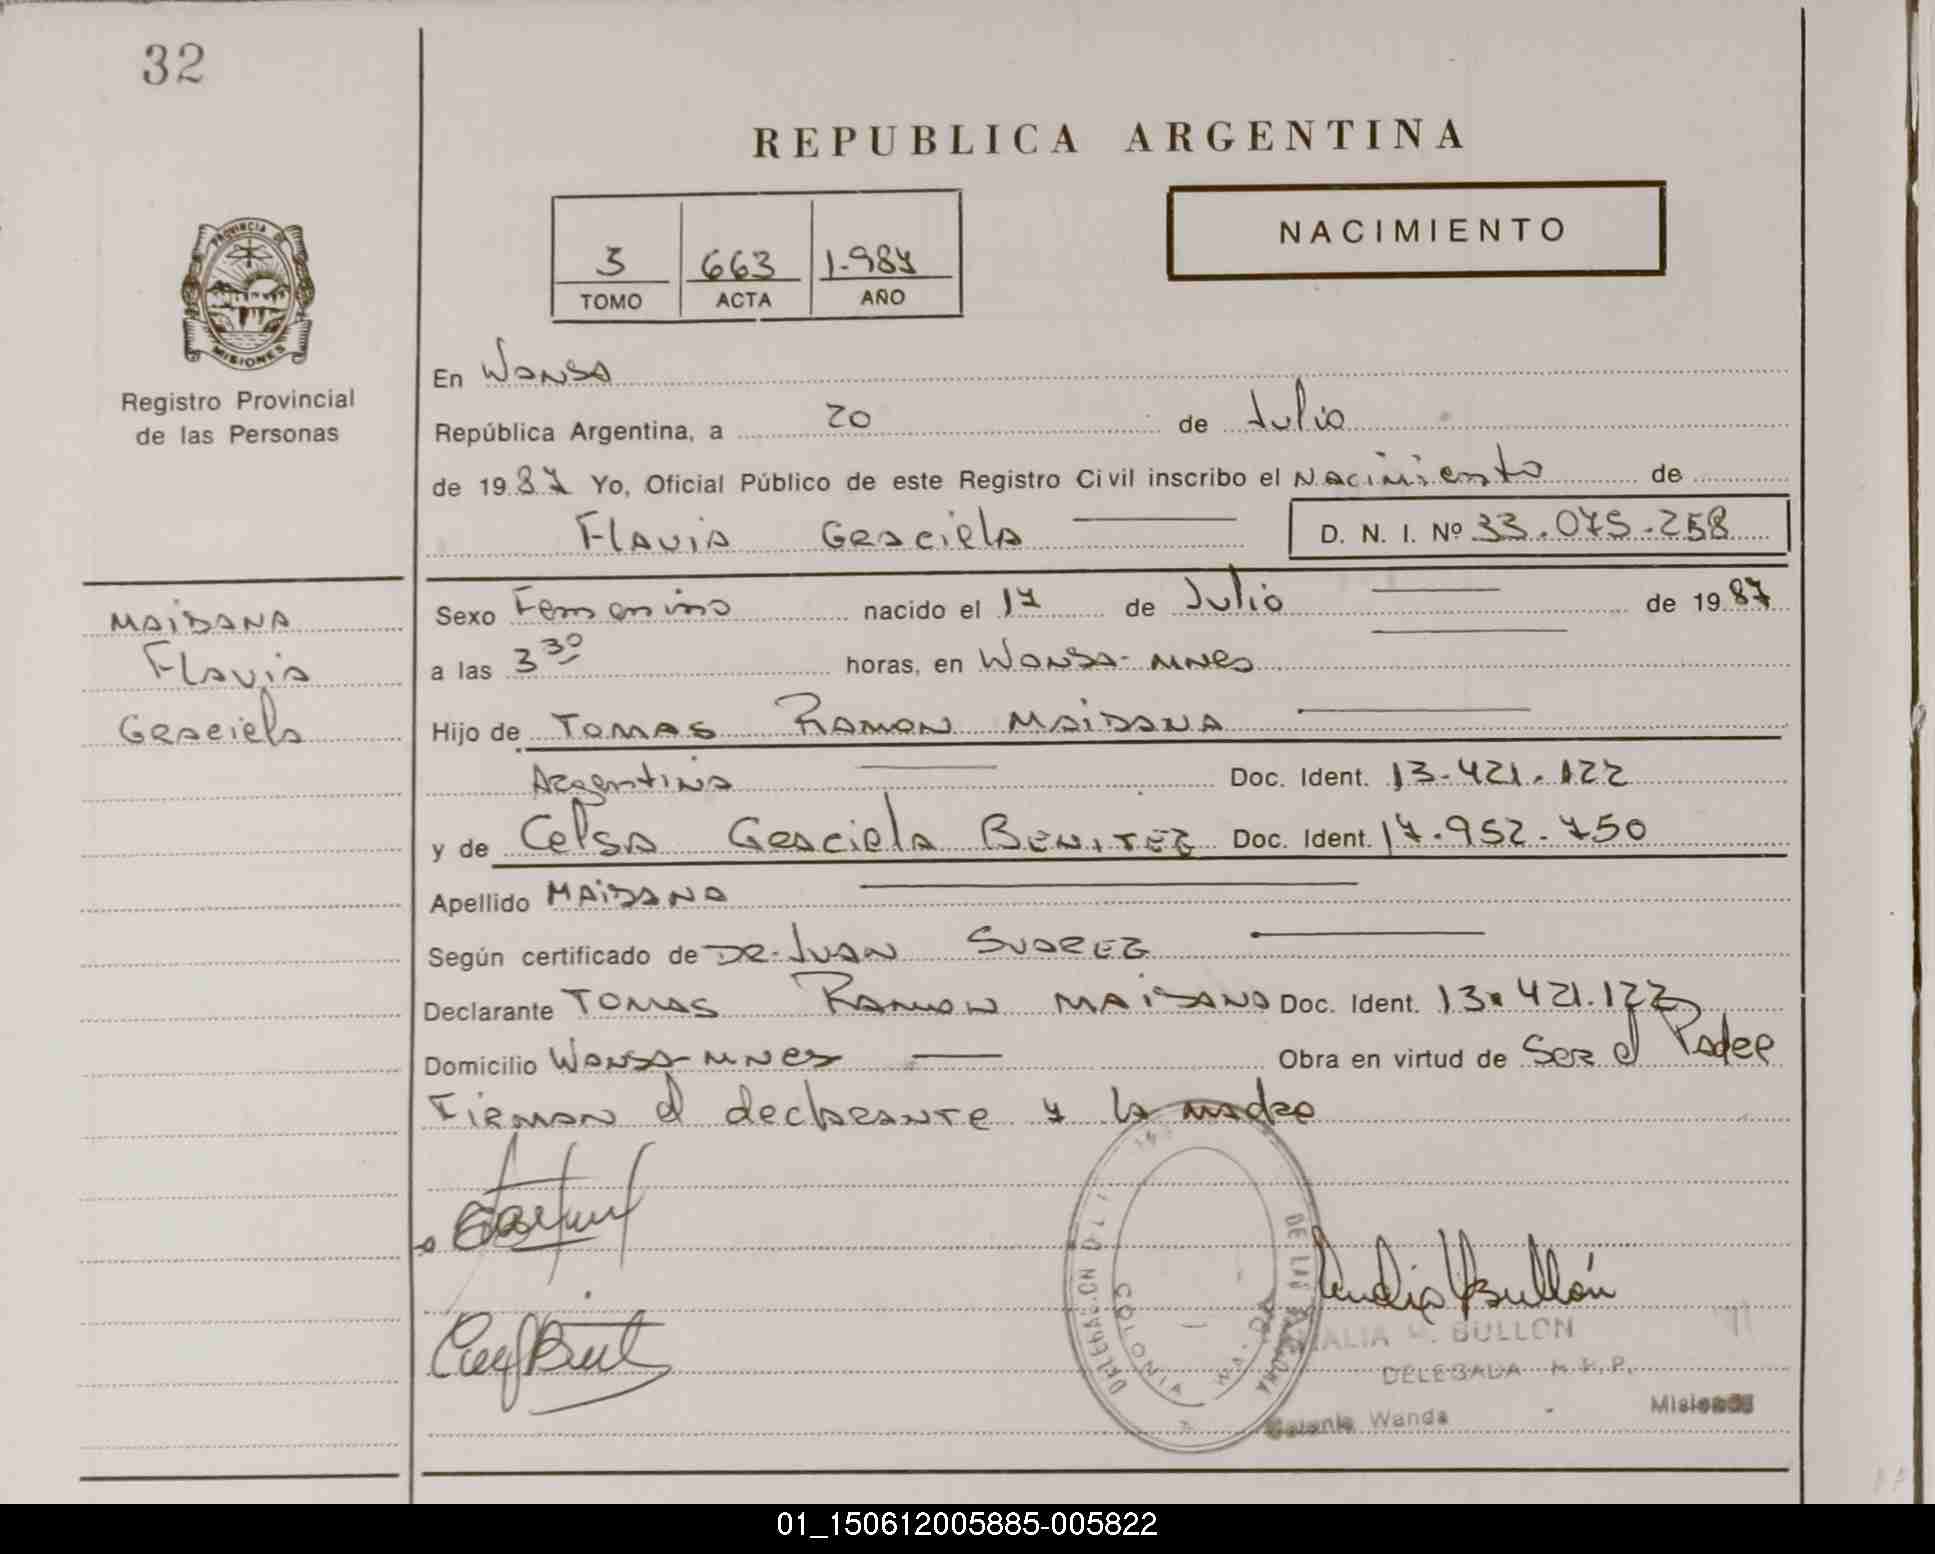 32
REPUBLICA ARGENTINA
NACIMIENTO
3 663 1.987
TOMO ACTA AÑO
PROVINCIA DE
MISIONES
Registro Provincial
de las Personas
En Wanda
República Argentina, a 20 de Julio
de 1987 Yo, Oficial Público de este Registro Civil inscribo el Nacimiento de
Flavia Graciela D. N. I. Nº 33.075.258
MAIDANA
Flavia
Graciela
Sexo Femenino nacido el 17 de Julio de 1987
a las 3 30 horas, en Wanda-Mnes
Hijo de TOMAS RAMON MAIDANA
Argentina Doc. Ident. 13.421.122
y de Celsa Graciela BENITEZ Doc. Ident. 17.952.750
Apellido MAIDANA
Según certificado de DR. JUAN SUAREZ
Declarante TOMAS RAMON MAIDANA Doc. Ident. 13.421.122
Domicilio Wanda-Mnes Obra en virtud de Ser el Padre
Firman el declarante y la madre
DELEGACION
DE LAS
COLONIA WANDA
BULLON
DELEGADA R.P.P.
Colonia Wanda - Misiones
01_150612005885-005822